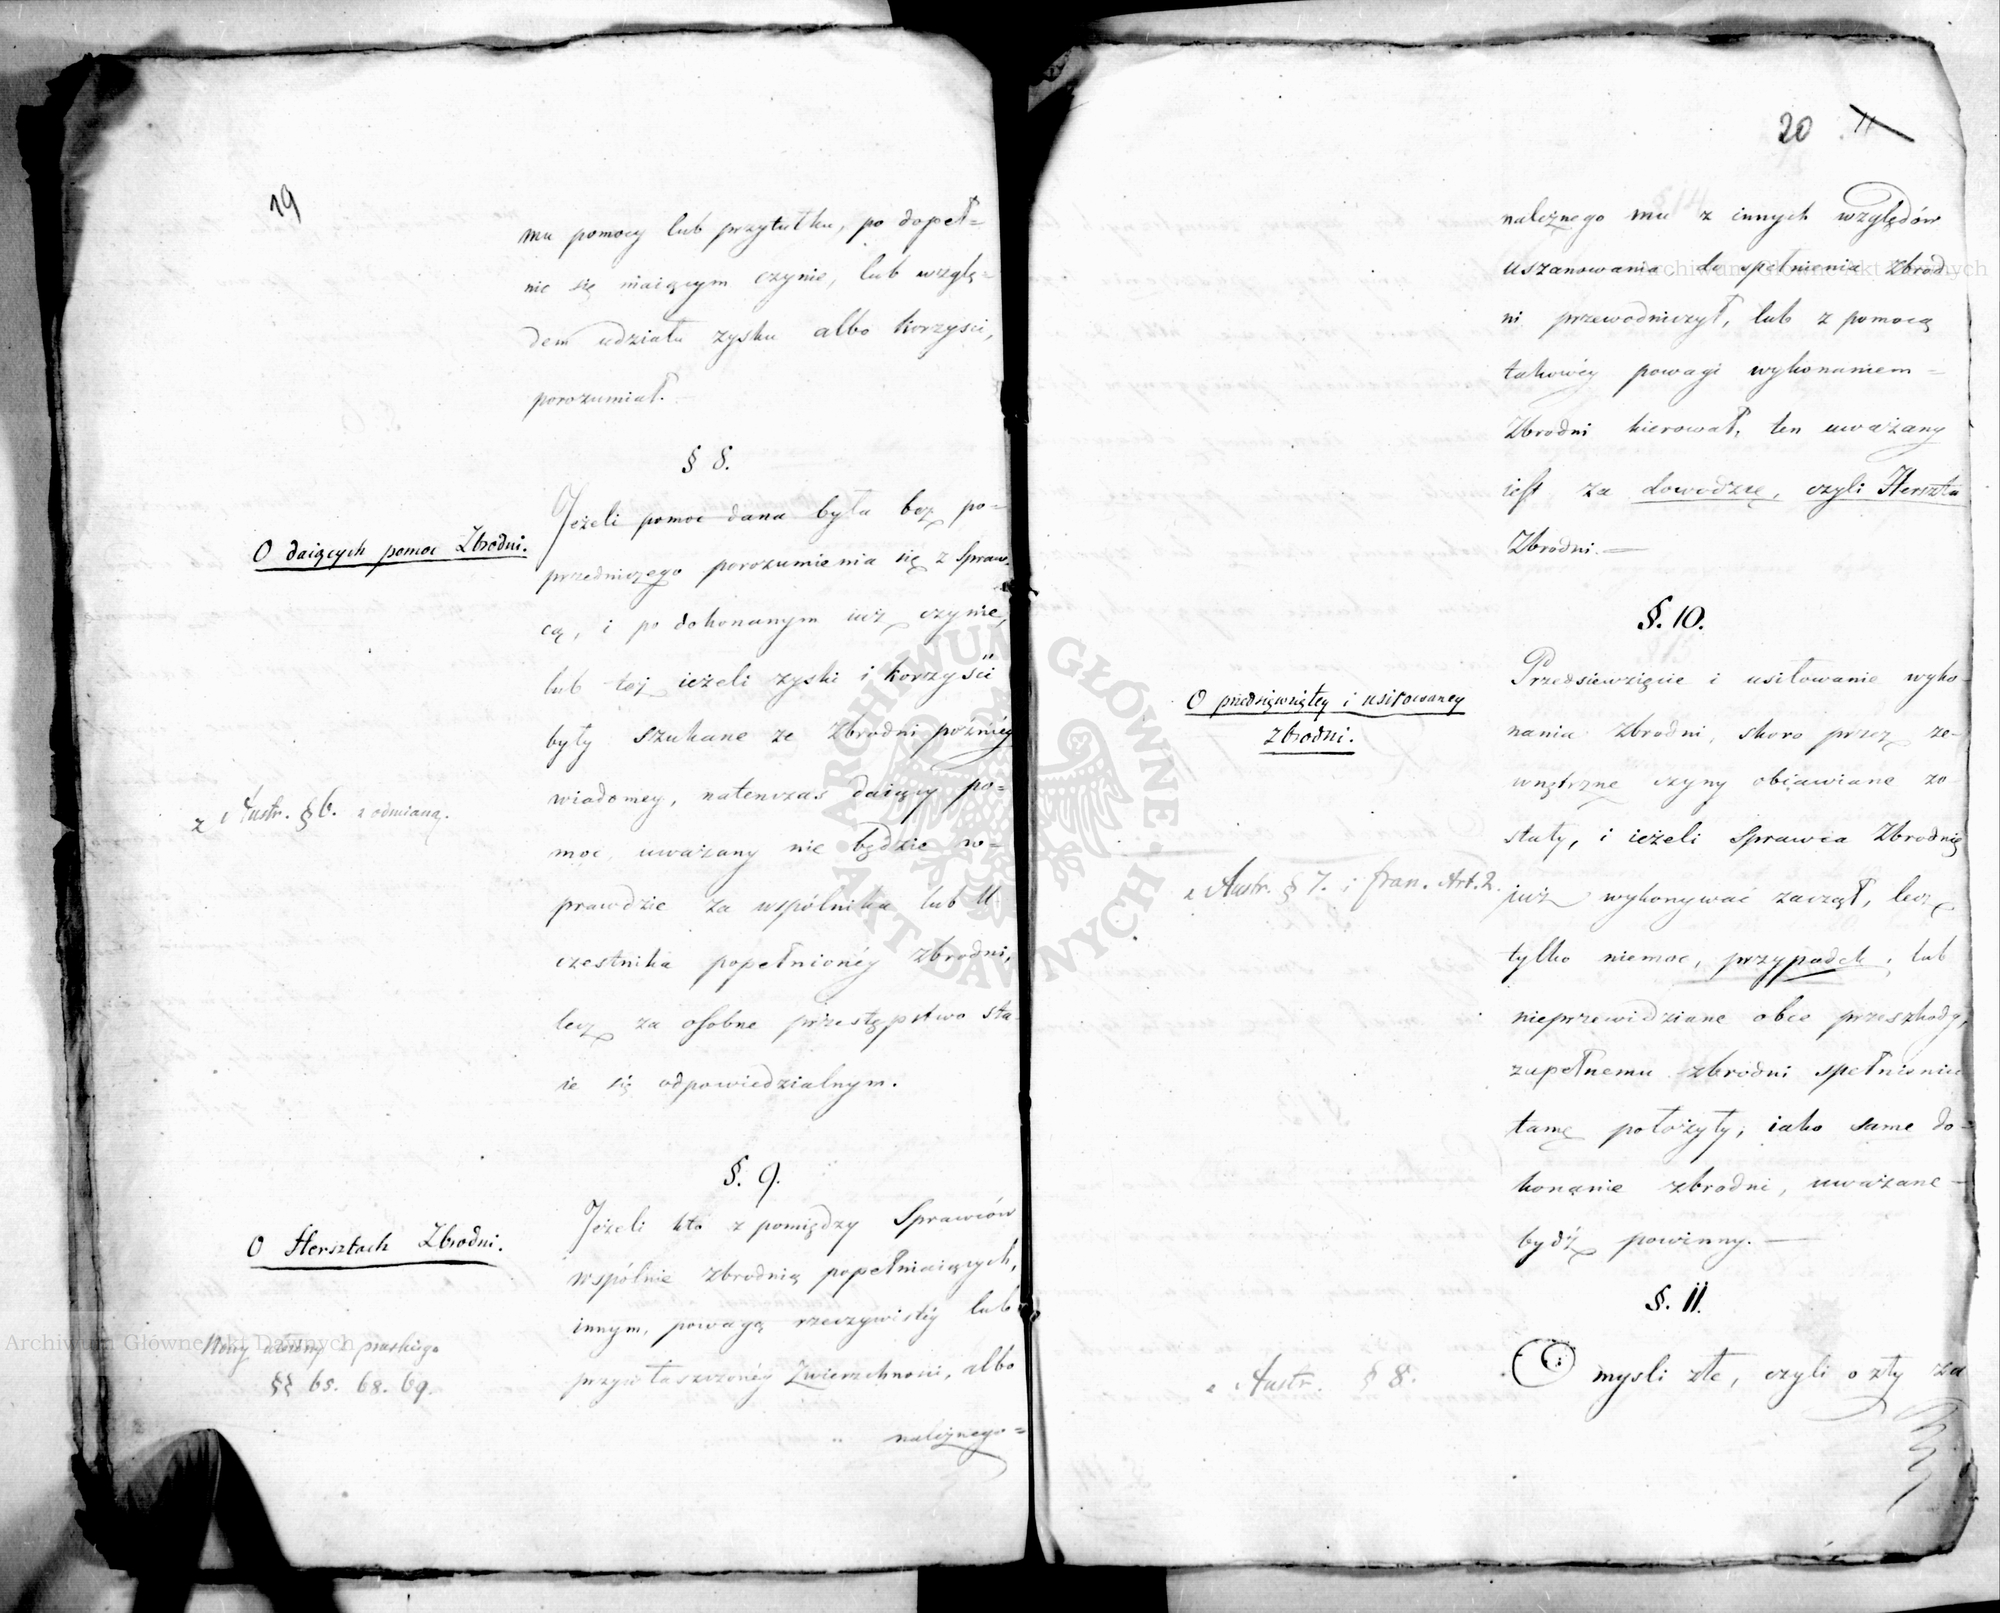 19
mu pomocy lub przytułku, po dopeł=
nic się maiącym czynie, lub wzglę=
dem udziału zysku albo korzyści,
porozumiał.
§ 8.
O daiących pomoc Zbrodni.
Jeżeli pomoc dana była bez po=
przedniczego porozumienia się z Spraw
cą, i po dokonanym iuż czynie,
lub też ieżeli zyski i korzyści
były szukane ze Zbrodni późniéy
z Austr. § 6. z odmianą.
wiadomey, natenczas daiący po=
moc, uważany nie będzie w=
prawdzie za wspólnika lub U
czestnika popełnionéy zbrodni,
lecz za osobne przestępstwo sta
ie się odpowiedzialnym.
§. 9.
O Hersztach Zbrodni.
Jeżeli kto z pomiędzy Sprawców
wspólnie zbrodnią popełniaiących,
innym, powagą rzeczywistéy lub
przywłaszczonéy Zwierzchności, albo
pruskiego
§§ 65. 68. 69.
należnego=
20 11
należnego mu z innych względów
uszanowania do spełnienia Zbrod
ni przewodniczył, lub z pomocą
takowéy powagi wykonaniem=
Zbrodni kierował, ten uważany
iest za dowodzcę, czyli Herszta
Zbrodni.—
§. 10.
O przedsięwziętey i usiłowaney
Zbrodni.
Przedsiewzięcie i usiłowanie wyko
nania Zbrodni, skoro przez ze=
wnętrzne czyny obiawiane zo
stały, i ieżeli Sprawca Zbrodnię
z Austr. § 7. i fran. Art. 2.
już wykonywać zaczął, lecz
tylko niemoc, przypadek, lub
nieprzewidziane obce przeszkody,
zupełnemu zbrodni spełnieniu
tamę położyły, iako same do=
konanie zbrodni, uważane—
bydź powinny.—
§. 11.
z Austr. § 8.
O mysli złe, czyli o zły za
Archiwum Główne Akt Dawnych
Archiwum Główne Akt Dawnych
ARCHIWUM GŁÓWNE AKT DAWNYCH